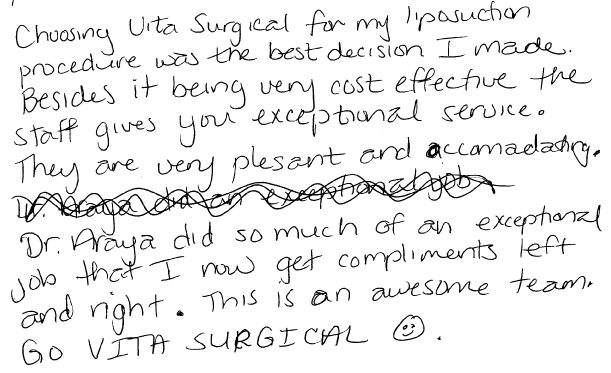 Choosing Vita Surgical for my liposuction
procedure was the best decision I made.
Besides it being very cost effective the
staff gives you exceptional service.
They are very plesant and accomadating.
Dr. Araya did an exceptional job
Dr. Araya did so much of an exceptional
job that I now get compliments left
and right. This is an awesome team.
Go VITA SURGICAL ☺.